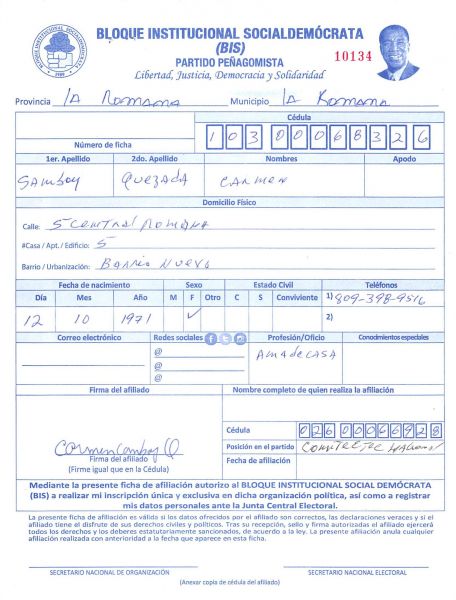 BLOQUE INSTITUCIONAL SOCIALDEMÓCRATA
(BIS)
PARTIDO PEÑAGOMISTA
Libertad, Justicia, Democracia y Solidaridad
10134
Provincia La Romana Municipio La Romana
Cédula
Número de ficha 10300068326
1er. Apellido 2do. Apellido Nombres Apodo
Samboy Quezada Carmen
Domicilio Físico
Calle: 5 Central Romana
#Casa / Apt. / Edificio: 5
Barrio / Urbanización: Barrio Nuevo
Fecha de nacimiento Sexo Estado Civil Teléfonos
Día Mes Año M F Otro C S Conviviente 1) 809-398-9516
12 10 1971 ✓ 2)
Correo electrónico Redes sociales Profesión/Oficio Conocimientos especiales
@ Ama de casa
@
@
Firma del afiliado Nombre completo de quien realiza la afiliación
Cédula 02600066928
Carmen Samboy Q Posición en el partido
Firma del afiliado Fecha de afiliación
(Firme igual que en la Cédula)
Mediante la presente ficha de afiliación autorizo al BLOQUE INSTITUCIONAL SOCIAL DEMÓCRATA
(BIS) a realizar mi inscripción única y exclusiva en dicha organización política, así como a registrar
mis datos personales ante la Junta Central Electoral.
La presente ficha de afiliación es válida si los datos ofrecidos por el afiliado son correctos, las declaraciones veraces y si el
afiliado tiene el disfrute de sus derechos civiles y políticos. Tras su recepción, sello y firma autorizadas el afiliado ejercerá
todos los derechos y los deberes estatutariamente sancionados, de acuerdo a la ley. La presente afiliación anula cualquier
afiliación realizada con anterioridad a la fecha que aparece en esta ficha.
SECRETARIO NACIONAL DE ORGANIZACIÓN SECRETARIO NACIONAL ELECTORAL
(Anexar copia de cédula del afiliado)